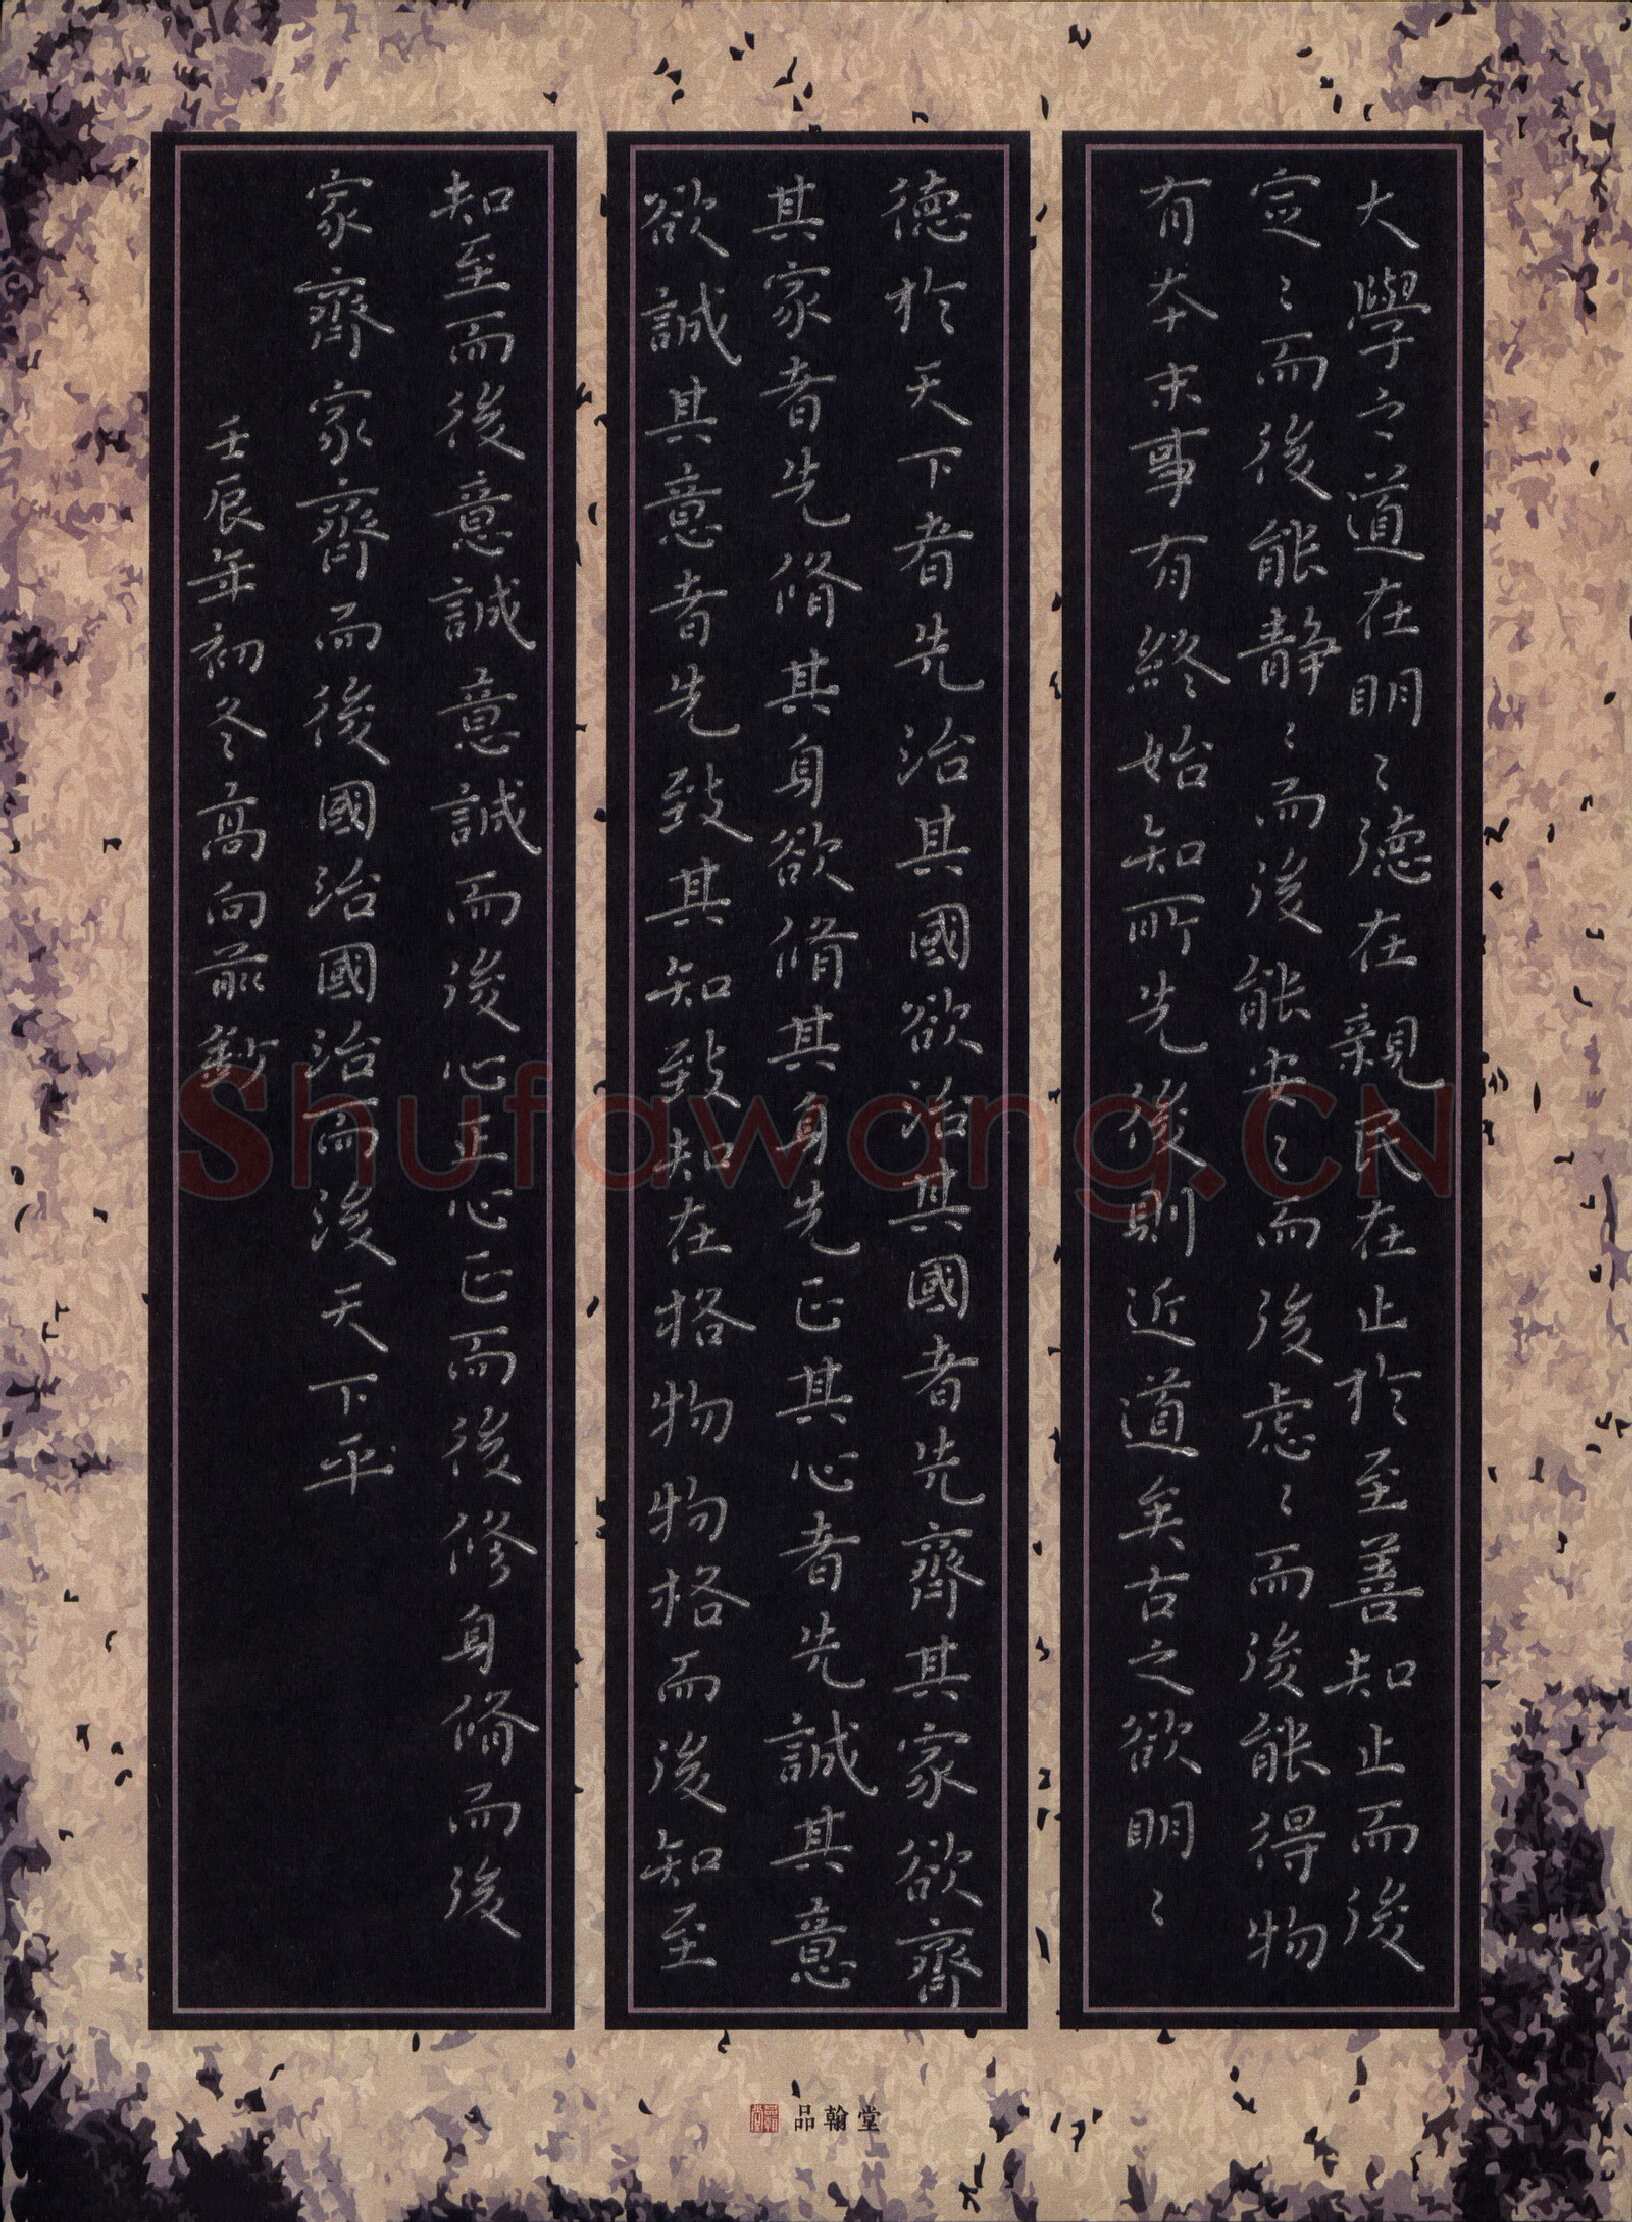 大學之道在明〻德在親民在止於至善知止而後
定〻而後能静〻而後能安〻而後虑〻而後能得物
有本末事有終始知所先後則近道矣古之欲明〻
德於天下者先治其國欲治其國者先齊其家欲齊
其家者先脩其身欲脩其身先正其心者先誠其意
欲誠其意者先致其知致知在格物物格而後知至
知至而後意誠意誠而後心正心正而後修身脩而後
家齊家齊而後國治國治而後天下平
壬辰年初冬高向前鈔
Shufawang.CN
品翰堂